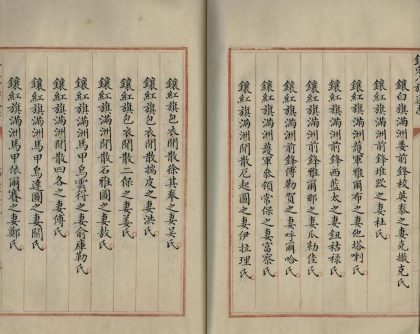 鑲白旗滿洲委前鋒校英泰之妻克撤克氏
鑲紅旗滿洲前鋒堆跤之妻杜氏
鑲紅旗滿洲護軍雅爾布之妻他喇氏
鑲紅旗滿洲前鋒西藍太之妻鈕祜祿氏
鑲紅旗滿洲前鋒雅爾那之妻瓜勒佳氏
鑲紅旗滿洲前鋒傅勒賀之妻呼爾哈氏
鑲紅旗滿洲護軍叅領常保之妻富察氏
鑲紅旗滿洲閒散厄起圖之妻伊拉理氏
鑲紅旗包衣閒散徐其奉之妻吳氏
鑲紅旗包衣閒散搋皮之妻洪氏
鑲紅旗包衣閒散二保之妻姜氏
鑲紅旗滿洲閒散石雅圖之妻敖氏
鑲紅旗滿洲閒散四各之妻傅氏
鑲紅旗滿洲馬甲烏雲待之妻俞庫勒氏
鑲紅旗滿洲馬甲烏達圖之妻關氏
鑲紅旗滿洲馬甲依爾賽之妻鄭氏